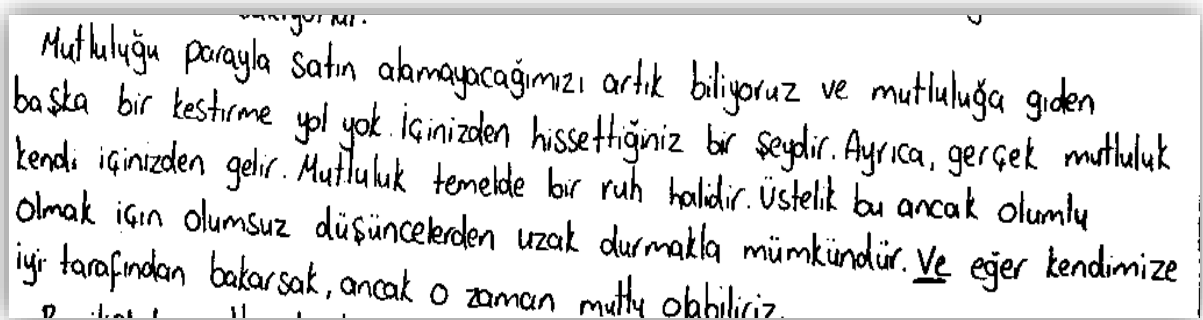 Mutluluğu parayla satın alamayacağımızı artık biliyoruz ve mutluluğa giden
başka bir kestirme yol yok. İçinizden hissettiğiniz bir şeydir. Ayrıca, gerçek mutluluk
kendi içinizden gelir. Mutluluk temelde bir ruh halidir. Üstelik bu ancak olumlu
olmak için olumsuz düşüncelerden uzak durmakla mümkündür. Ve eğer kendimize
iyi tarafından bakarsak, ancak o zaman mutlu olabiliriz.